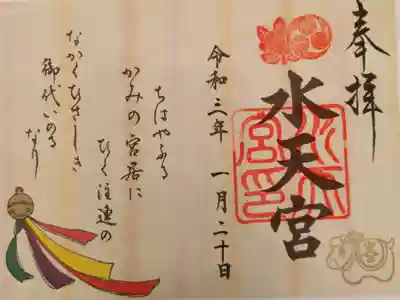 奉拝
水天宮
令和三年 一月二十日
ちはやふる
かみの宮居に
ひく注連の
なかくひさしき
御代いのる
なり